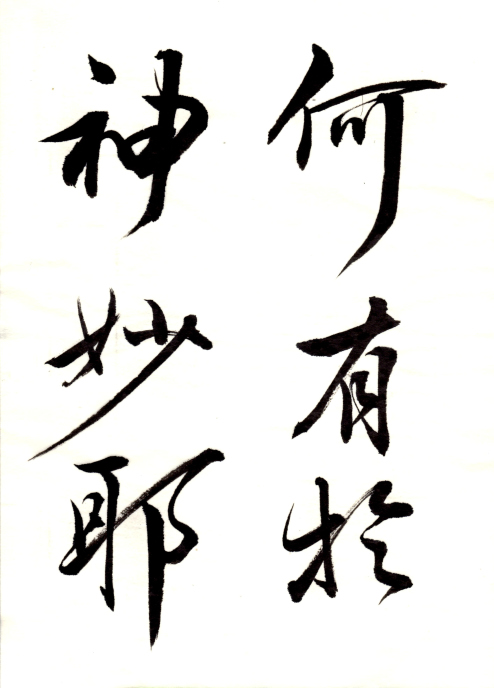 何有於
神妙耶